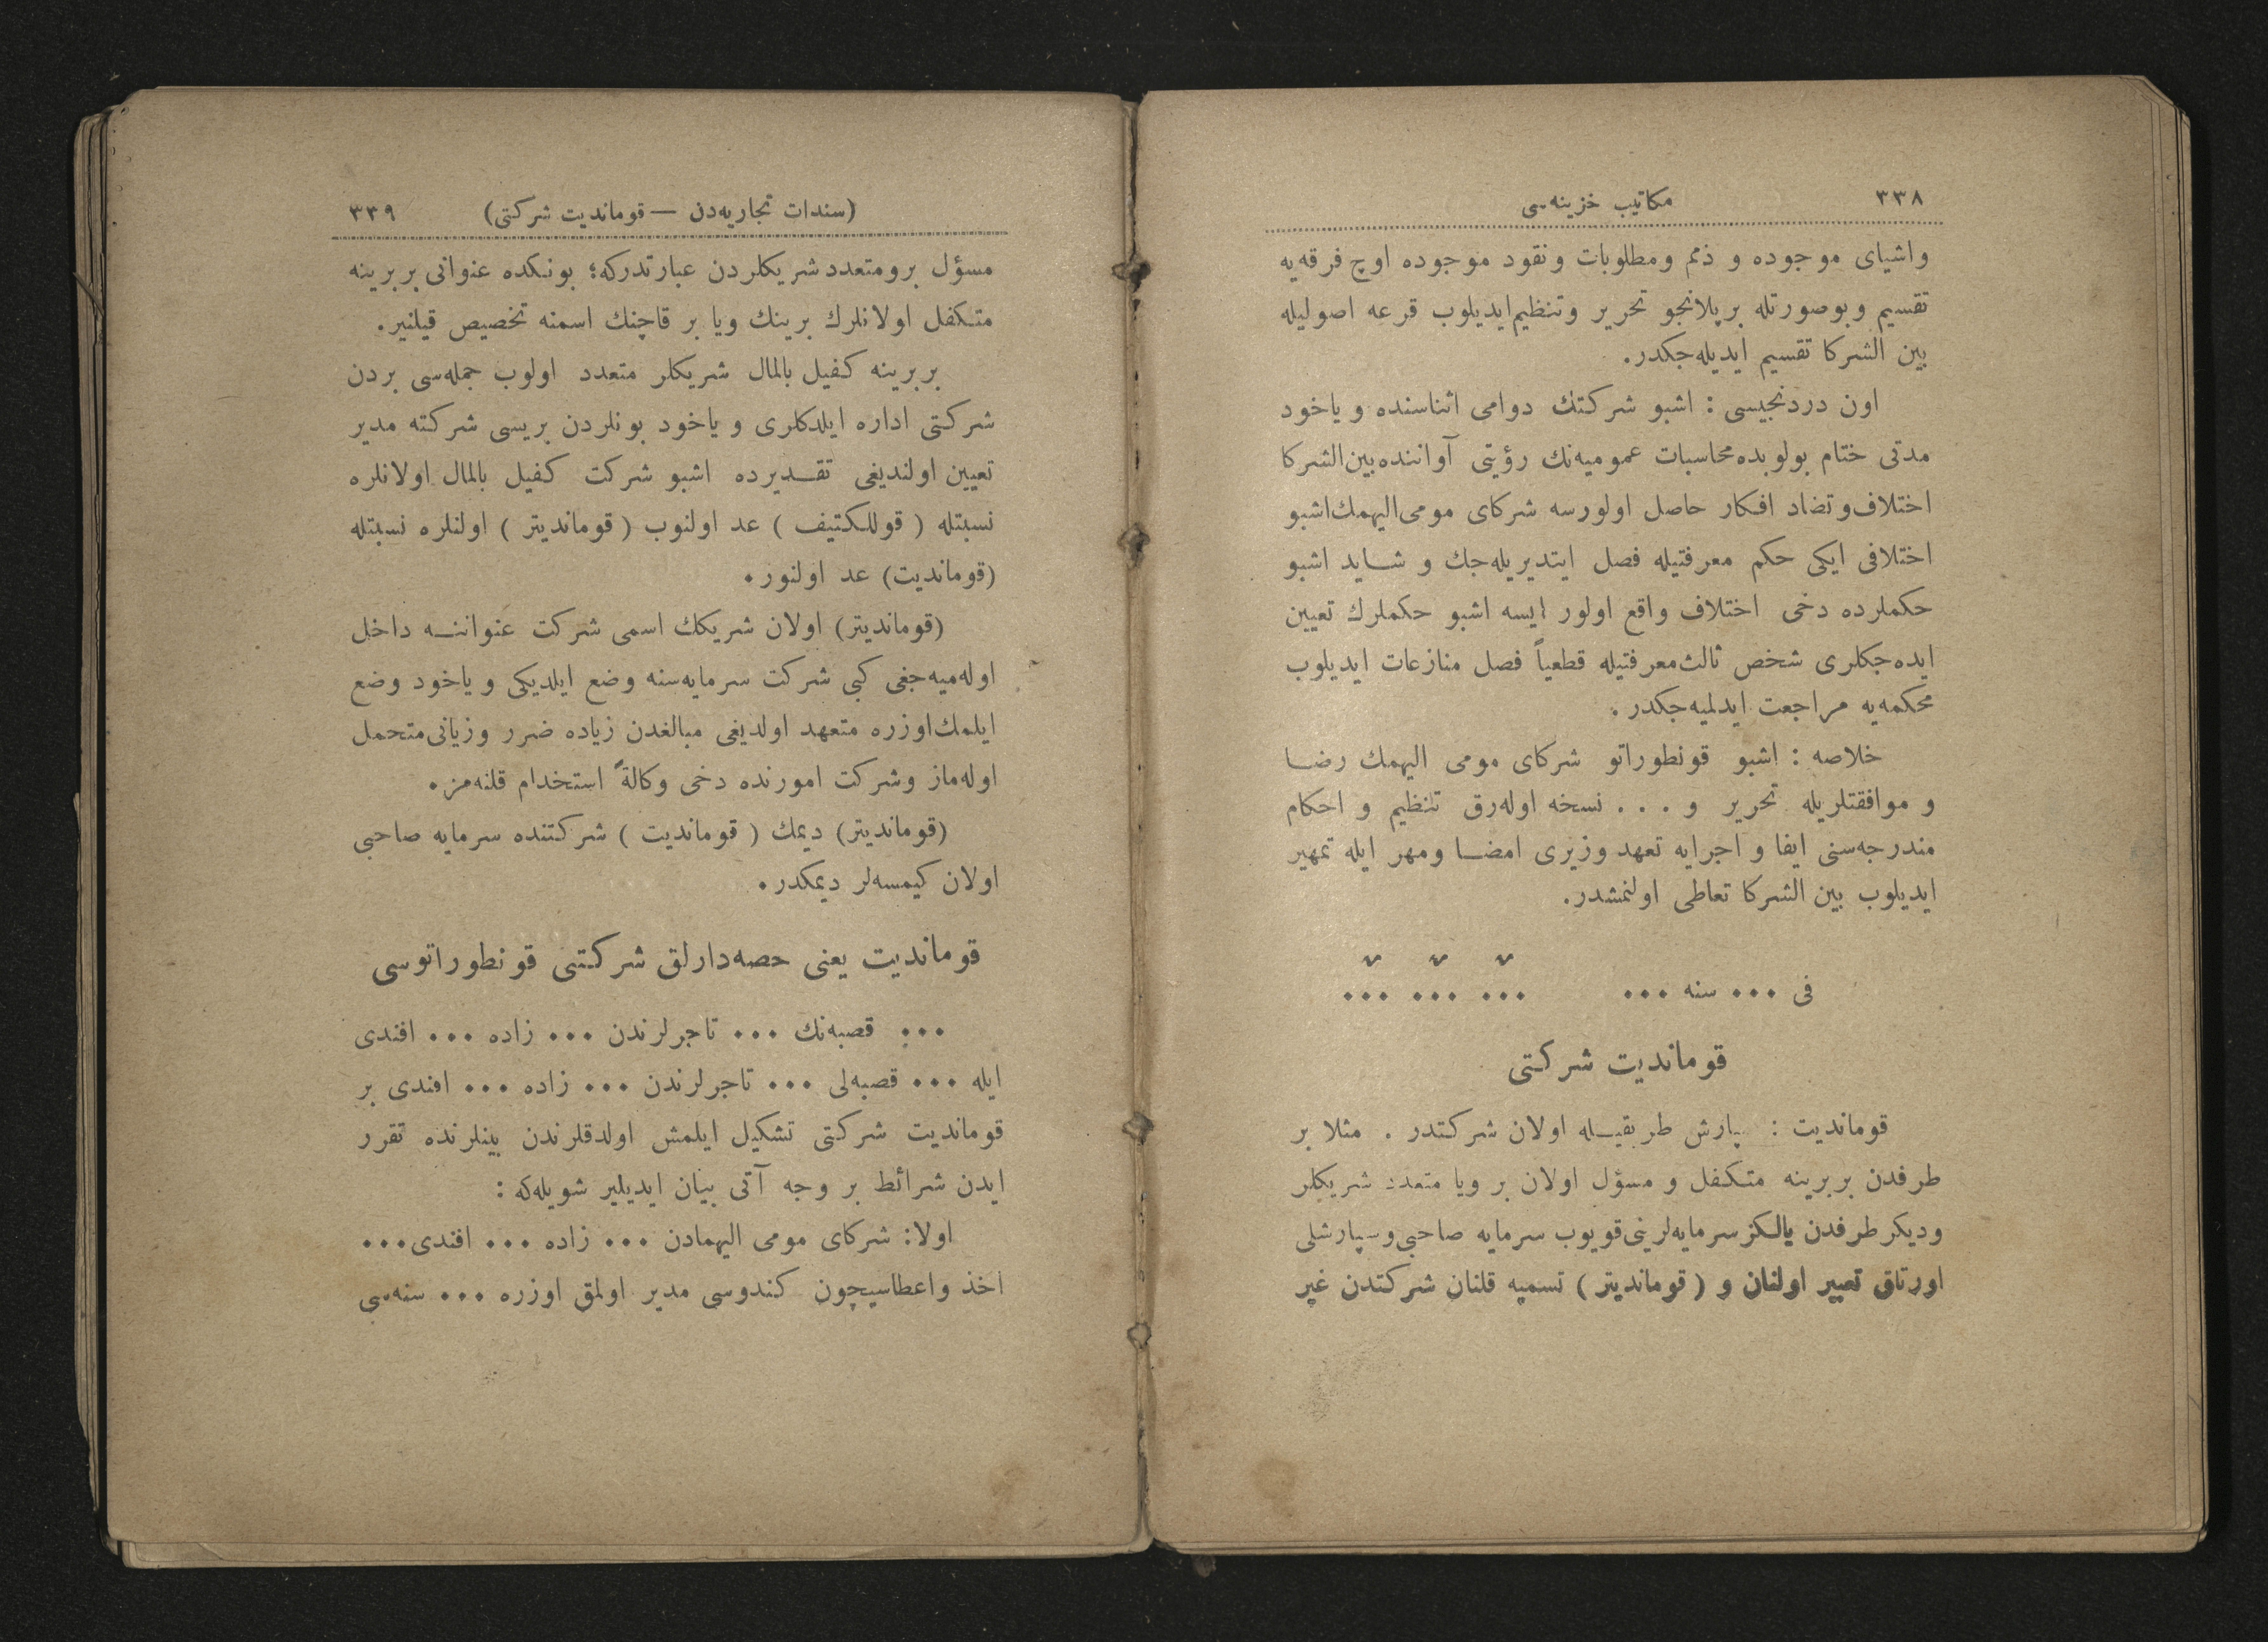 ٣٣٨ مكاتيب خزينه‌سى
واشياى موجوده و ذمم ومطلوبات ونقود موجوده اوچ فرقه‌يه
تقسيم وبوصورتله بر پلانچو تحرير وتنظيم ايديلوب قرعه اصوليله
بين الشركا تقسيم ايديله‌جكدر.
اون دردنجيسى : اشبو شركتك دوامى اثناسنده و ياخود
مدتى ختام بولوبده محاسبات عموميه‌نك رؤيتى آواننده بين‌الشركا
اختلاف‌وتضاد افكار حاصل اولورسه شركاى مومى‌اليهمك‌اشبو
اختلافى ايكى حكم معرفتيله فصل ايتديريله‌جك و شايد اشبو
حكملرده دخى اختلاف واقع اولور ايسه اشبو حكملرك تعيين
ايده‌جكلرى شخص ثالث‌معرفتيله قطعياً فصل منازعات ايديلوب
محكمه‌يه مراجعت ايدلميه‌جكدر.
خلاصه : اشبو قونطوراتو شركاى مومى اليهمك رضا
و موافقتلريله تحرير و . . . نسخه اوله‌رق تنظيم و احكام
مندرجه‌سنى ايفا و اجرايه تعهد وزيرى امضا ومهر ايله تمهير
ايديلوب بين الشركا تعاطى اولنمشدر.
فى ... سنه ... ... ... ...
قومانديت شركتى
قومانديت : پارش طريقيله اولان شركتدر . مثلا بر
طرفدن بربرينه متكفل و مسؤل اولان بر ويا متعدد شريكلر
وديكر طرفدن يالكز سرمايه‌لرينى‌قويوب سرمايه صاحبى‌وسپارشلى
اورتاق تعبير اولنان و ( قومانديتر ) تسميه قلنان شركتدن غير
(سندات تجاريه‌دن — قومانديت شركتى) ٣٣٩
مسؤل برومتعدد شريكلردن عبارتدركه؛ بونكده عنوانى بربرينه
متكفل اولانلرك برينك ويا بر قاچنك اسمنه تخصيص قيلنير.
بربرينه كفيل بالمال شريكلر متعدد اولوب جمله‌سى بردن
شركتى اداره ايلدكلرى و ياخود بونلردن بريسى شركته مدير
تعيين اولنديغى تقديرده اشبو شركت كفيل بالمال اولانلره
نسبتله ( قوللكتيف ) عد اولنوب ( قومانديتر ) اولنلره نسبتله
(قومانديت) عد اولنور.
(قومانديتر) اولان شريكك اسمى شركت عنواننه داخل
اوله‌ميه‌جغى كبى شركت سرمايه‌سنه وضع ايلديكى و ياخود وضع
ايلمك‌اوزره متعهد اولديغى مبالغدن زياده ضرر وزيانى‌متحمل
اوله‌ماز وشركت امورنده دخى وكالةً استخدام قلنه‌مز.
(قومانديتر) ديمك ( قومانديت ) شركتنده سرمايه صاحبى
اولان كيمسه‌لر ديمكدر.
قومانديت يعنى حصه‌دارلق شركتى قونطوراتوسى
... قصبه‌نك ... تاجرلرندن ... زاده ... افندى
ايله ... قصبه‌لى ... تاجرلرندن ... زاده ... افندى بر
قومانديت شركتى تشكيل ايلمش اولدقلرندن بينلرنده تقرر
ايدن شرائط بر وجه آتى بيان ايديلير شويله‌كه :
اولا: شركاى مومى اليهمادن ... زاده ... افندى...
اخذ واعطاسيچون كندوسى مدير اولمق اوزره ... سنه‌سى